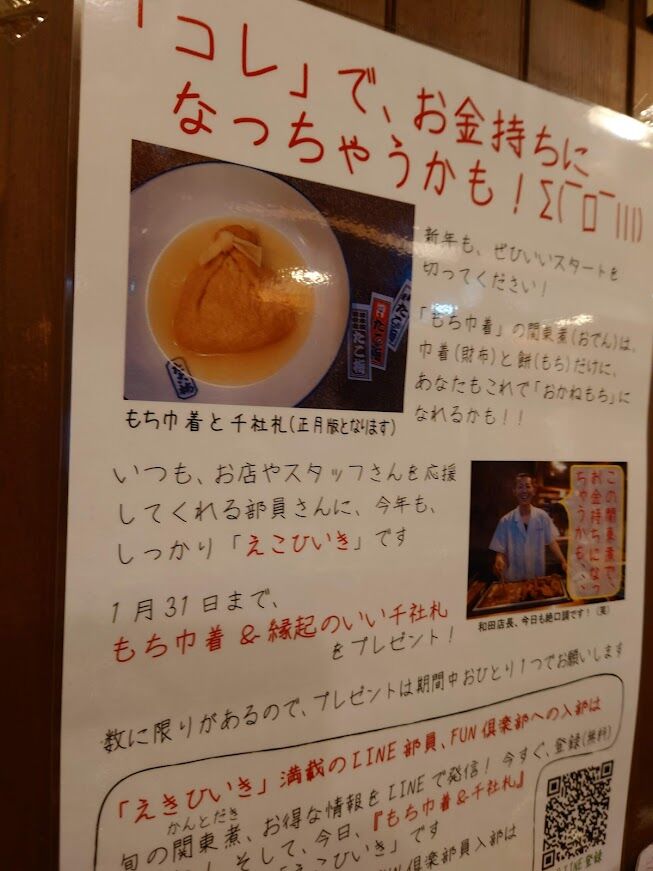 「コレ」で、お金持ちに
なっちゃうかも！Σ(￣ロ￣|||)
新年も、ぜひいいスタートを
切ってください！
「もち巾着」の関東煮(おでん)は、
巾着(財布)と餅(もち)だけに、
あなたもこれで「おかねもち」に
なれるかも！！
たこ梅
もち巾着と千社札(正月版となります)
いつも、お店やスタッフさんを応援
してくれる部員さんに、今年も、
しっかり「えこひいき」です
この関東煮で、
お金持ちになっ
ちゃうかも、、
和田店長、今日も絶口調です！（笑）
1月31日まで、
もち巾着&縁起のいい千社札
をプレゼント！
数に限りがあるので、プレゼントは期間中おひとり1つでお願いします
「えきひいき」満載のLINE部員、FUN倶楽部への入部は
かんとだき
旬の関東煮、お得な情報をLINEで発信！今すぐ、登録(無料)
そして、今日、『もち巾着&千社札』
「えこひいき」です
FUN倶楽部員入部は
LINE登録